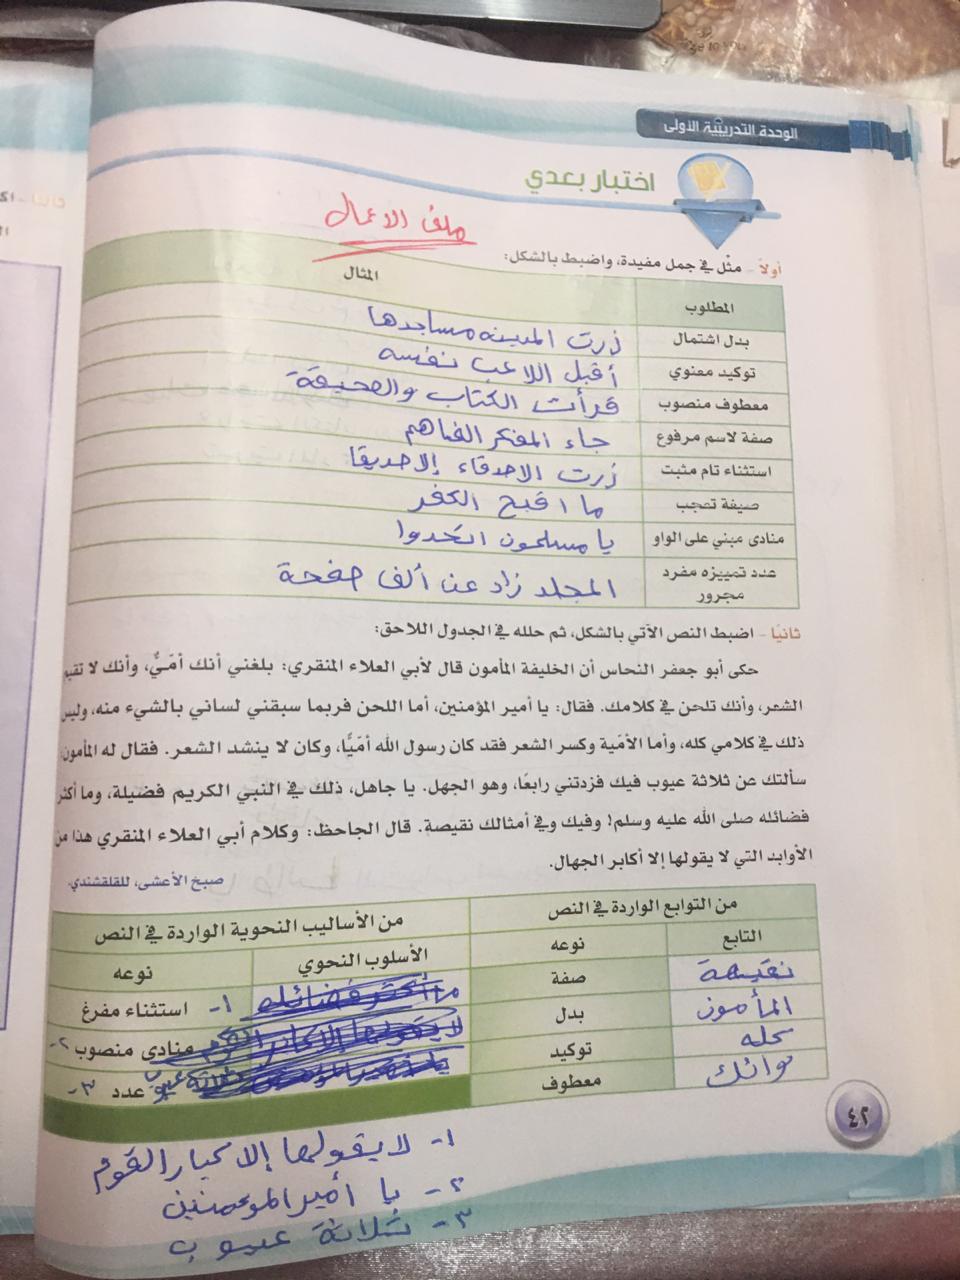 الوحدة التدريبية الأولى
اختبار بعدي
ملف الاعمال
أولاً - مثّل في جمل مفيدة، واضبط بالشكل:
المطلوب المثال
بدل اشتمال زرت المدينه مساجدها
توكيد معنوي أقبل اللاعب نفسه
معطوف منصوب قرأت الكتاب والصحيفة
صفة لاسم مرفوع جاء المفكر الفاهم
استثناء تام مثبت زرت الاصدقاء إلا صديقا
صيغة تعجب ما اقبح الكفر
منادى مبني على الواو يا مسلمون اتحدوا
عدد تمييزه مفرد مجرور المجلد زاد عن ألف صفحة
ثانيًا - اضبط النص الآتي بالشكل، ثم حلله في الجدول اللاحق:
حكى أبو جعفر النحاس أن الخليفة المأمون قال لأبي العلاء المنقري: بلغني أنك أمّيٌّ، وأنك لا تقيم
الشعر، وأنك تلحن في كلامك. فقال: يا أمير المؤمنين، أما اللحن فربما سبقني لساني بالشيء منه، وليس
ذلك في كلامي كله، وأما الأمّية وكسر الشعر فقد كان رسول الله أمّيًّا، وكان لا ينشد الشعر. فقال له المأمون:
سألتك عن ثلاثة عيوب فيك فزدتني رابعًا، وهو الجهل. يا جاهل، ذلك في النبي الكريم فضيلة، وما أكثر
فضائله صلى الله عليه وسلم! وفيك وفي أمثالك نقيصة. قال الجاحظ: وكلام أبي العلاء المنقري هذا من
الأوابد التي لا يقولها إلا أكابر الجهال.
صبح الأعشى، للقلقشندي.
من التوابع الواردة في النص من الأساليب النحوية الواردة في النص
التابع نوعه الأسلوب النحوي نوعه
نقيصة صفة ما أكثر فضائله ١- استثناء مفرغ
المأمون بدل لا يقولها إلا منادى منصوب ٢-
كله توكيد ثلاثة عيوب عدد ٣-
وانك معطوف
٤٢
١- لا يقولها إلا كبار القوم
٢- يا أمير المؤمنين
٣- ثلاثة عيوب